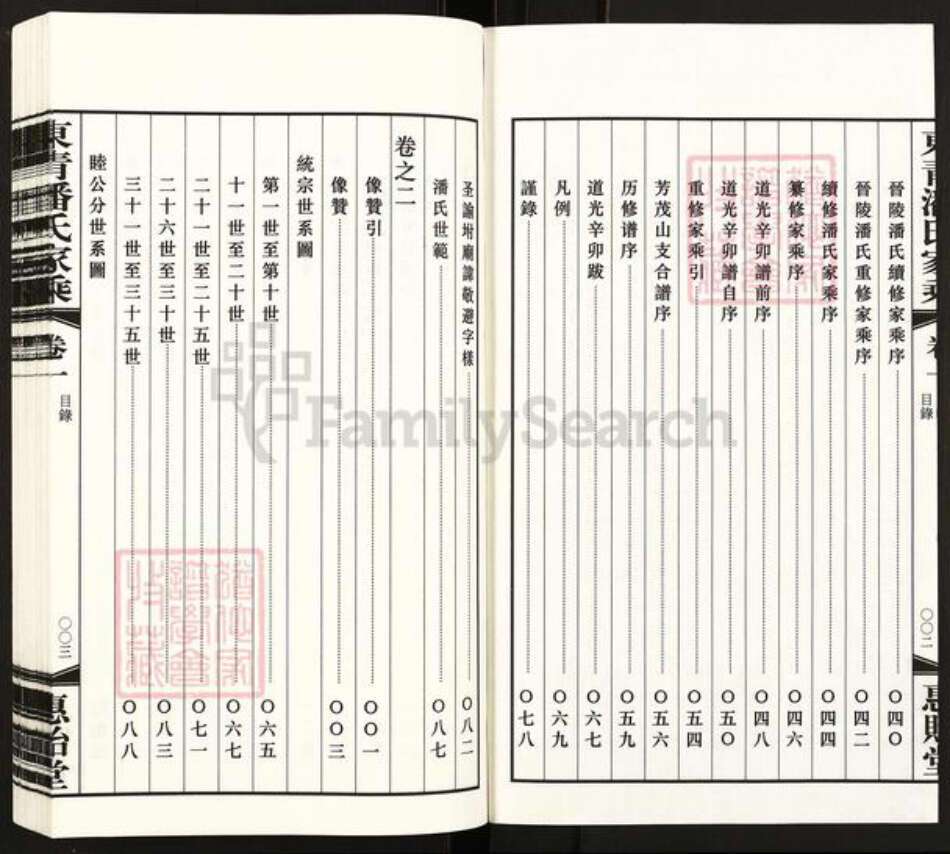 晉陵潘氏續修家乘序 〇四〇
晉陵潘氏重修家乘序 〇四二
續修潘氏家乘序 〇四四
纂修家乘序 〇四六
道光辛卯譜前序 〇四八
道光辛卯譜自序 〇五〇
重修家乘引 〇五四
芳茂山支合譜序 〇五六
历修谱序 〇五九
道光辛卯跋 〇六七
凡例 〇六九
謹錄 〇七八
卷一
目錄
〇〇二
圣諭坿廟諱敬避字樣 〇八二
潘氏世範 〇八七
卷之二
像贊引 〇〇一
像贊 〇〇三
統宗世系圖
第一世至第十世 〇六五
十一世至二十世 〇六七
二十一世至二十五世 〇七一
二十六世至三十世 〇八三
三十一世至三十五世 〇八八
睦公分世系圖
東青潘氏家乘
卷一
目錄
〇〇三
惠貽堂
FamilySearch